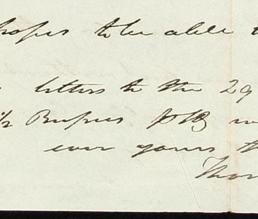 hopes to be able
letters to the 29
½ Rupees
ever yours
Thos